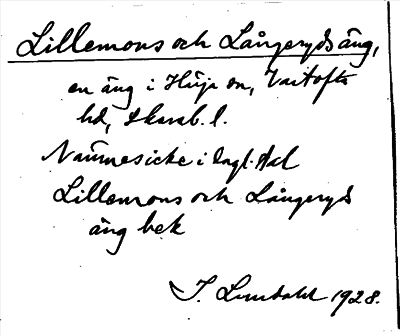 Lillemons och Långeryds äng,
en äng i Höja sn, Vartofta
hd, Skarab. l.
Namnes icke i dagl. tal
Lillemons och Långeryds
äng bek
J. Lundahl 1928.